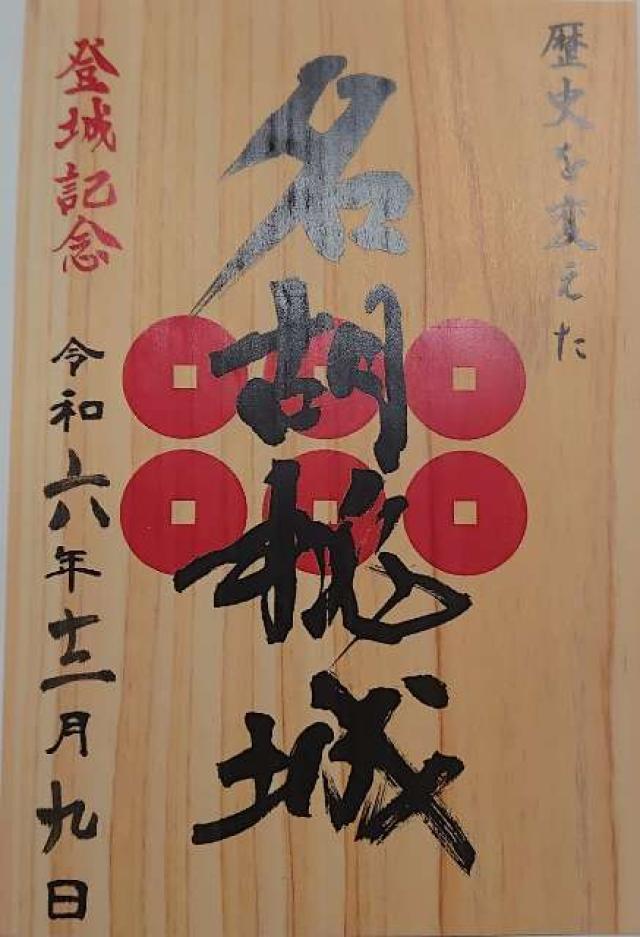 歴史を変えた
名胡桃城
登城記念
令和六年十二月九日